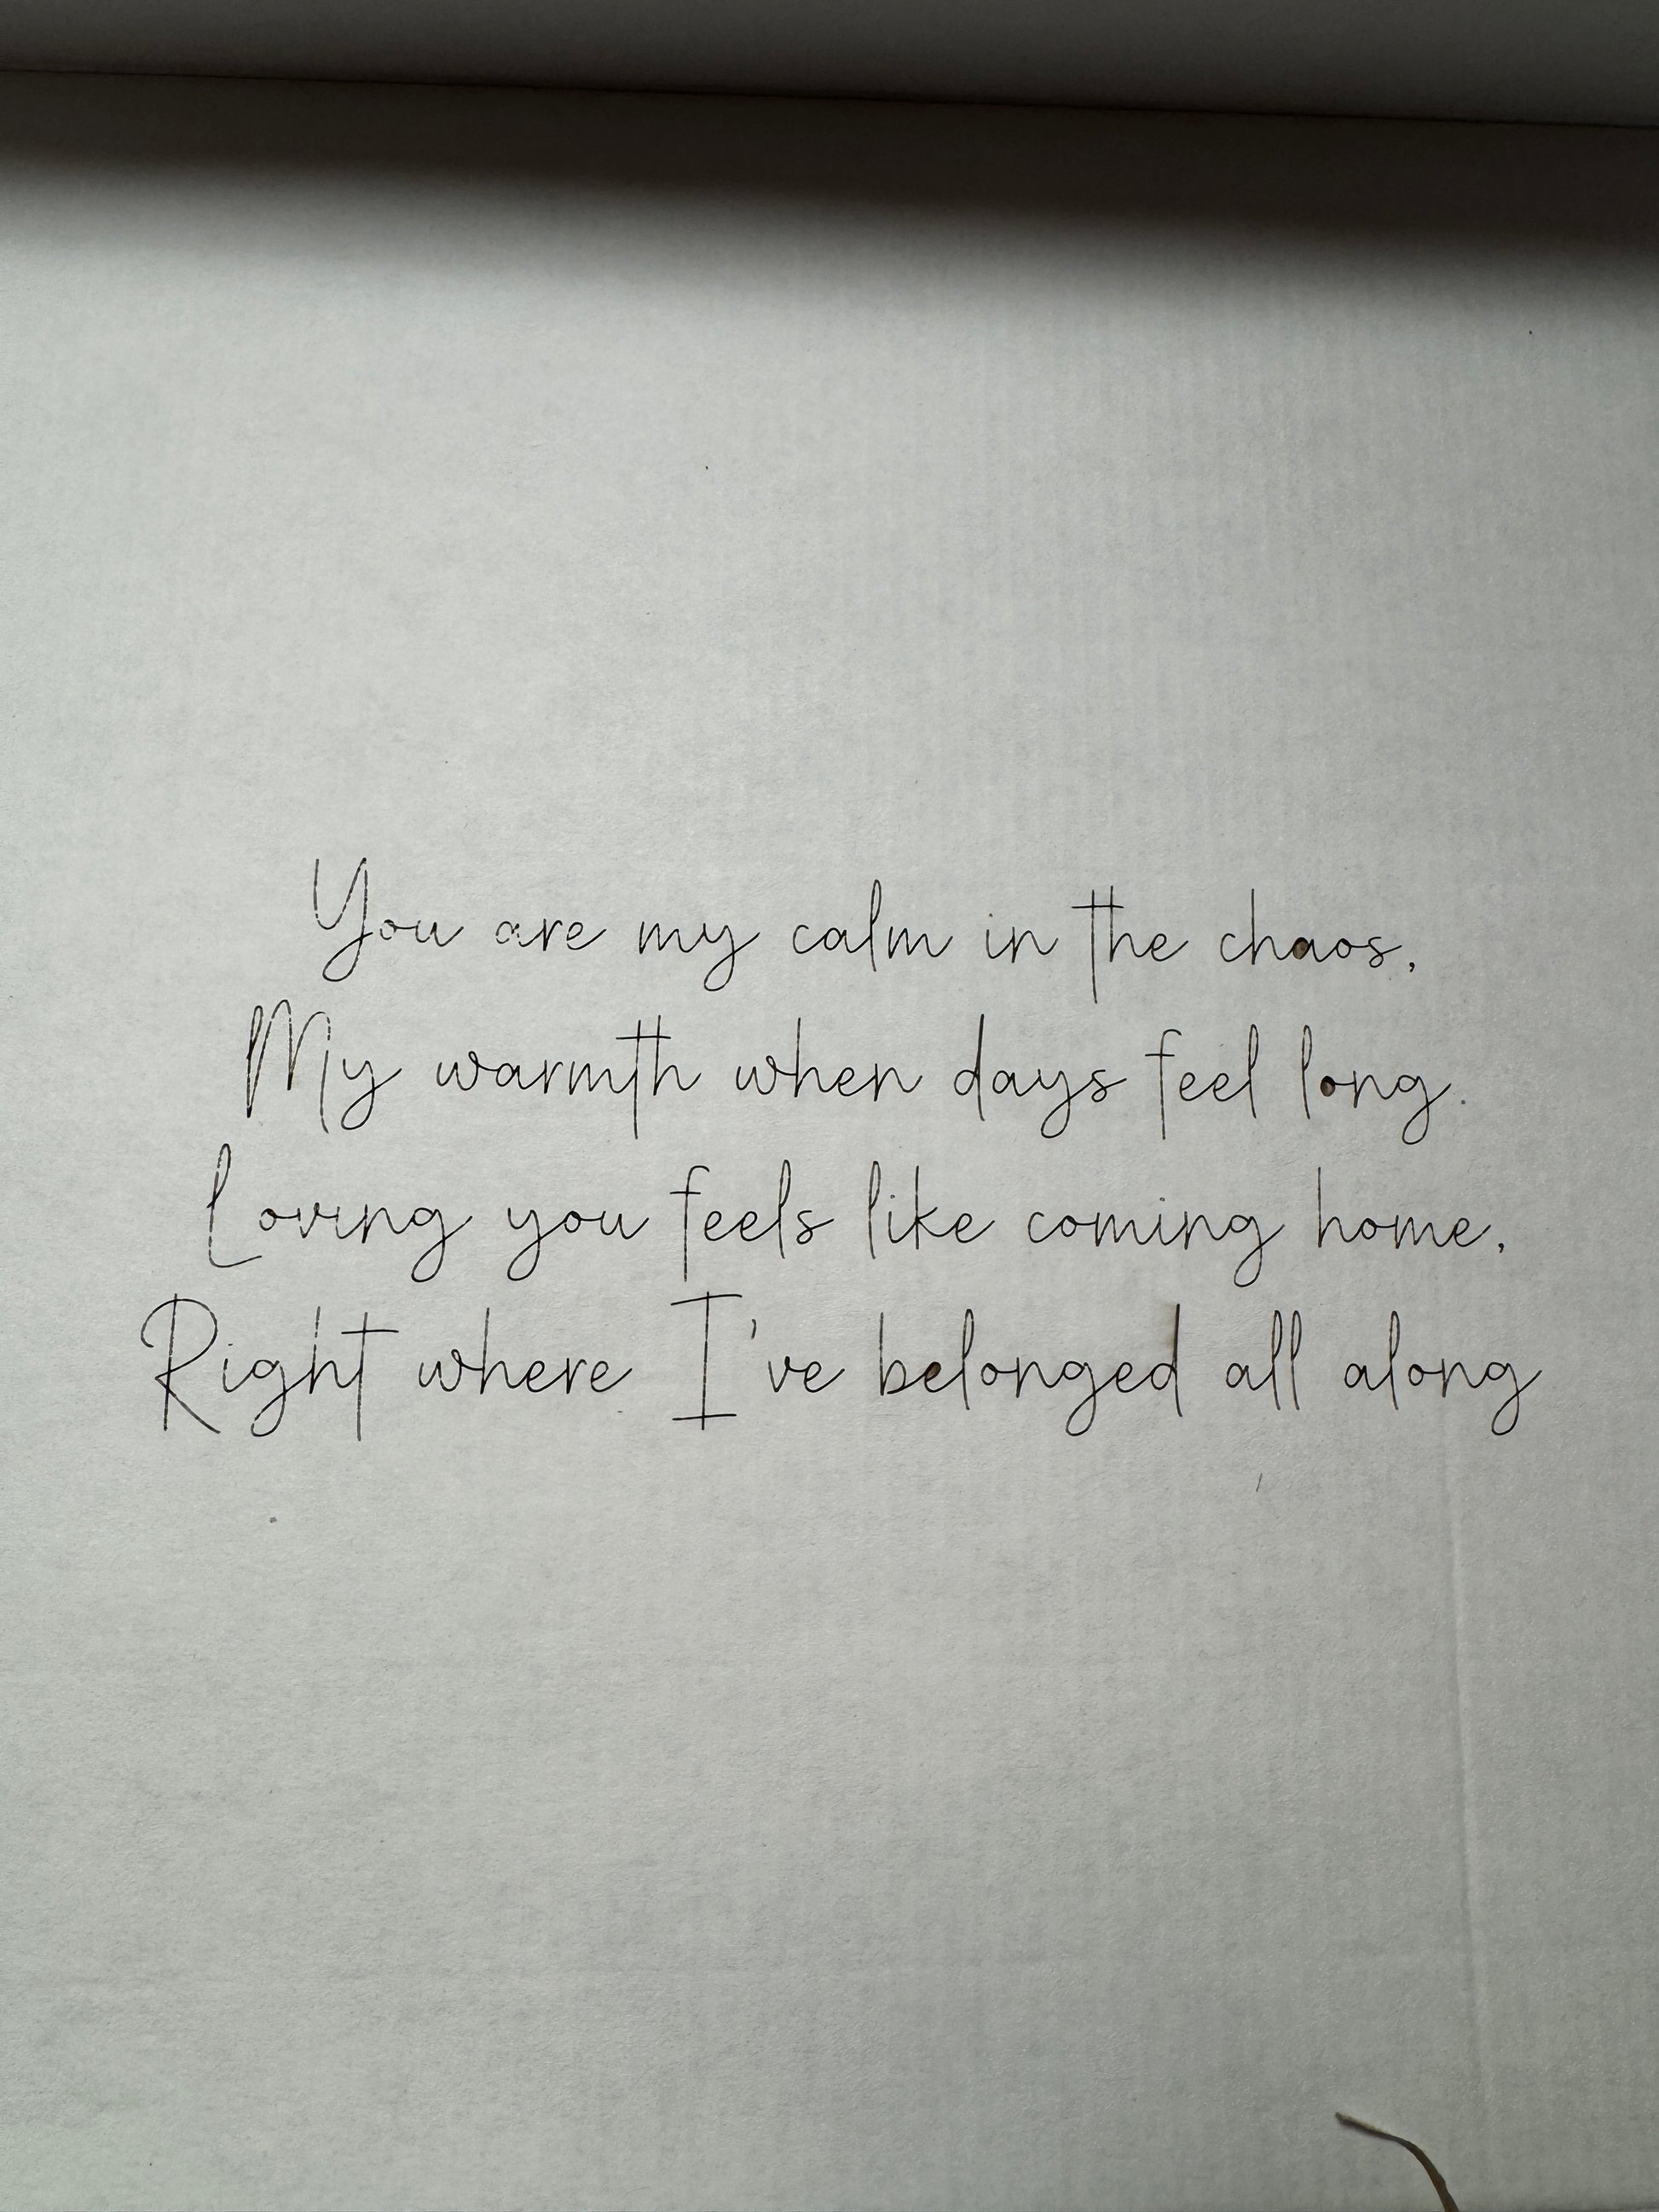 You are my calm in the chaos,
My warmth when days feel long.
Loving you feels like coming home,
Right where I've belonged all along